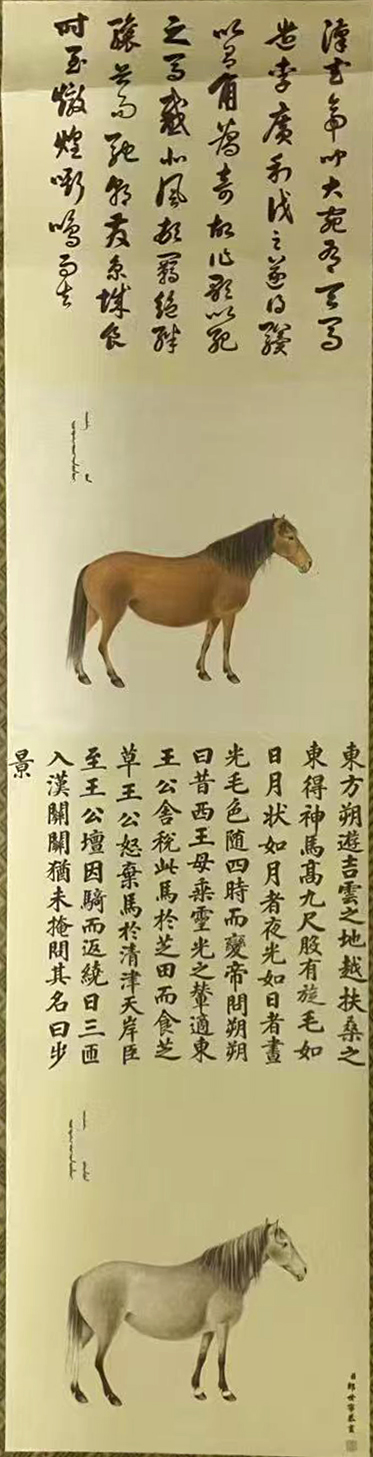 漢武帝聞大宛有天馬
遣李廣利伐之遂得
以有角為奇故作歌以
之馬感北風頓羈絕絆
驤首而馳朝發京城食
时至燉煌嘶鳴而去
東方朔遊吉雲之地越扶桑之
東得神馬高九尺股有旋毛如
日月狀如月者夜光如日者晝
光毛色随四時而變帝問朔朔
曰昔西王母乘靈光之輦適東
王公舍税此馬於芝田而食芝
草王公怒棄馬於清津天岸臣
至王公壇因騎而返繞日三匝
入漢關關猶未掩問其名曰步
景
臣郎世寧恭畫